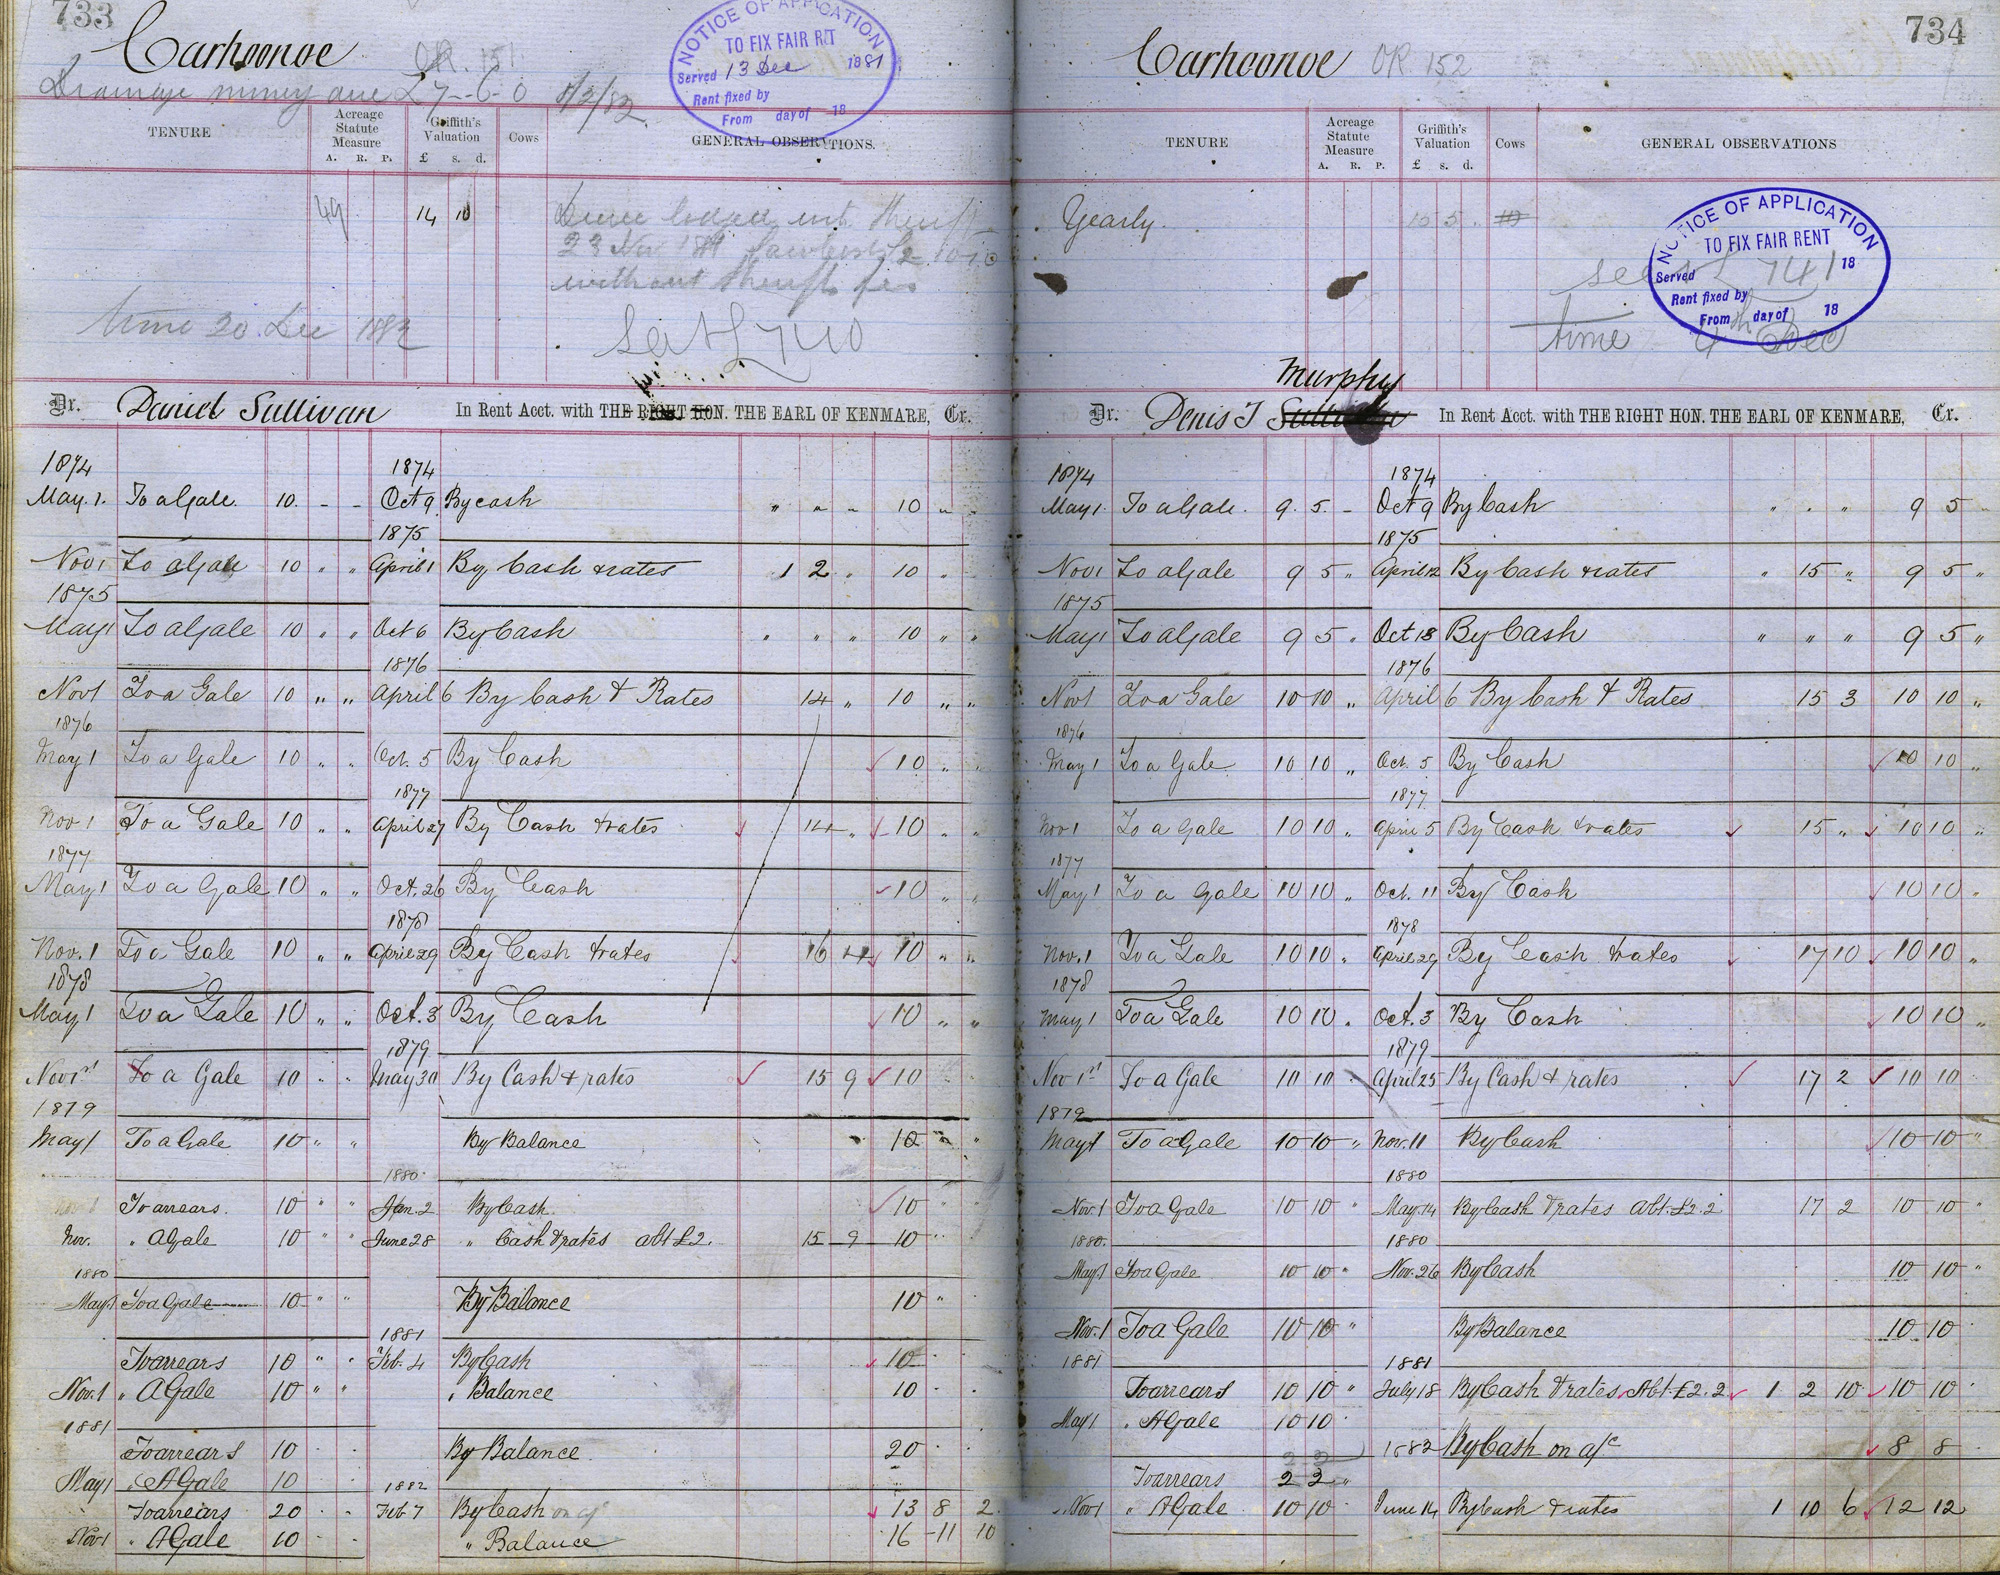 733
Carhoonoe
OR. 151
Drainage money due £7-6-0 8/2/82
NOTICE OF APPLICATION
TO FIX FAIR RENT
Served 13 Dec 1881
Rent fixed by
From day of 18
TENURE
Acreage Statute Measure
A. R. P.
Griffith's Valuation
£ s. d.
Cows
GENERAL OBSERVATIONS.
49 14 10
without Sheriff's fees
time 20 Dec 1882
Dr. Daniel Sullivan In Rent Acct. with THE RIGHT HON. THE EARL OF KENMARE, Cr.
1874 1874
May. 1. To a Gale. 10. - - Oct 9 By cash " " " 10 " "
1875
Nov 1 To a Gale 10 " " April 1 By Cash & rates 1 2 " 10 "
1875
May 1 To a Gale 10 " " Oct 6 By Cash " " " 10 " "
1876
Nov 1 To a Gale 10 " " April 6 By Cash & Rates 14 " 10 " "
1876
May 1 To a Gale 10 " " Oct. 5 By Cash 10 " "
1877
Nov 1 To a Gale 10 " " April 27 By Cash & rates 14 " 10 " "
1877
May 1 To a Gale 10 " " Oct. 26 By Cash 10 " "
1878
Nov. 1 To a Gale 10 " " April 29 By Cash & rates 16 4 10 " "
1878
May 1 To a Gale 10 " " Oct. 3 By Cash 10 " "
1879
Nov 1st To a Gale 10 " " May 30 By Cash & rates 15 9 10
1879
May 1 To a Gale 10 " " By Balance 10 " "
1880
Nov 1 To arrears. 10 " " Jan. 2 By Cash. 10 "
Nov. " A Gale 10 " " June 28 " Cash & rates abt £2. 15 9 10 "
1880
May 1 To a Gale 10 " " By Balance 10 "
1881
To arrears 10 " " Feb. 4 By Cash 10
Nov. 1 " A Gale 10 " " " Balance 10
1881
To arrears 10 By Balance 20
May 1 " A Gale 10 1882
To arrears 20 Feb 7 By Cash on a/c 13 8 2
Nov 1 " A Gale 10 " Balance 16 -11 10
734
Carhoonoe OR 152
TENURE
Acreage Statute Measure
A. R. P.
Griffith's Valuation
£ s. d.
Cows
GENERAL OBSERVATIONS
Yearly. 15 5
NOTICE OF APPLICATION
TO FIX FAIR RENT
Served 18
Rent fixed by
From day of 18
see 741
time 4th Dec
Murphy
Dr. Denis J Sullivan In Rent Acct. with THE RIGHT HON. THE EARL OF KENMARE, Cr.
1874 1874
May 1. To a Gale. 9. 5. - Oct 9 By Cash " " " 9 5
1875
Nov 1 To a Gale 9 5 " April 12 By Cash & rates " 15 " 9 5 "
1875
May 1 To a Gale 9 5 " Oct 13 By Cash " " " 9 5 "
1876
Nov 1 To a Gale 10 10 " April 6 By Cash & Rates 15 3 10 10 "
1876
May 1 To a Gale 10 10 " Oct. 5 By Cash 10 10 "
1877
Nov 1 To a Gale 10 10 " April 5 By Cash & rates 15 " 10 10 "
1877
May 1 To a Gale 10 10 " Oct. 11 By Cash 10 10 "
1878
Nov. 1 To a Gale 10 10 " April 29 By Cash & rates 17 10 10 10 "
1878
May 1 To a Gale 10 10 " Oct. 3 By Cash 10 10 "
1879
Nov 1st To a Gale 10 10 " April 25 By Cash & rates 17 2 10 10
1879
May 1 To a Gale 10 10 " Nov. 11 By Cash 10 10 "
1880
Nov. 1 To a Gale 10 10 " May. 14 By Cash & rates Abt. £2.2 17 2 10 10 "
1880. 1880
May 1 To a Gale 10 10 " Nov. 26 By Cash 10 10 "
Nov. 1 To a Gale 10 10 " By Balance 10 10
1881 1881
To arrears 10 10 " July 18 By Cash & rates Abt. £2.2 1 2 10 10 10
May 1 " A Gale 10 10
1882 By Cash on a/c 8 8
2 2
To arrears 2 2 "
Nov 1 " A Gale 10 10 June 14 By Cash & rates 1 10 6 12 12